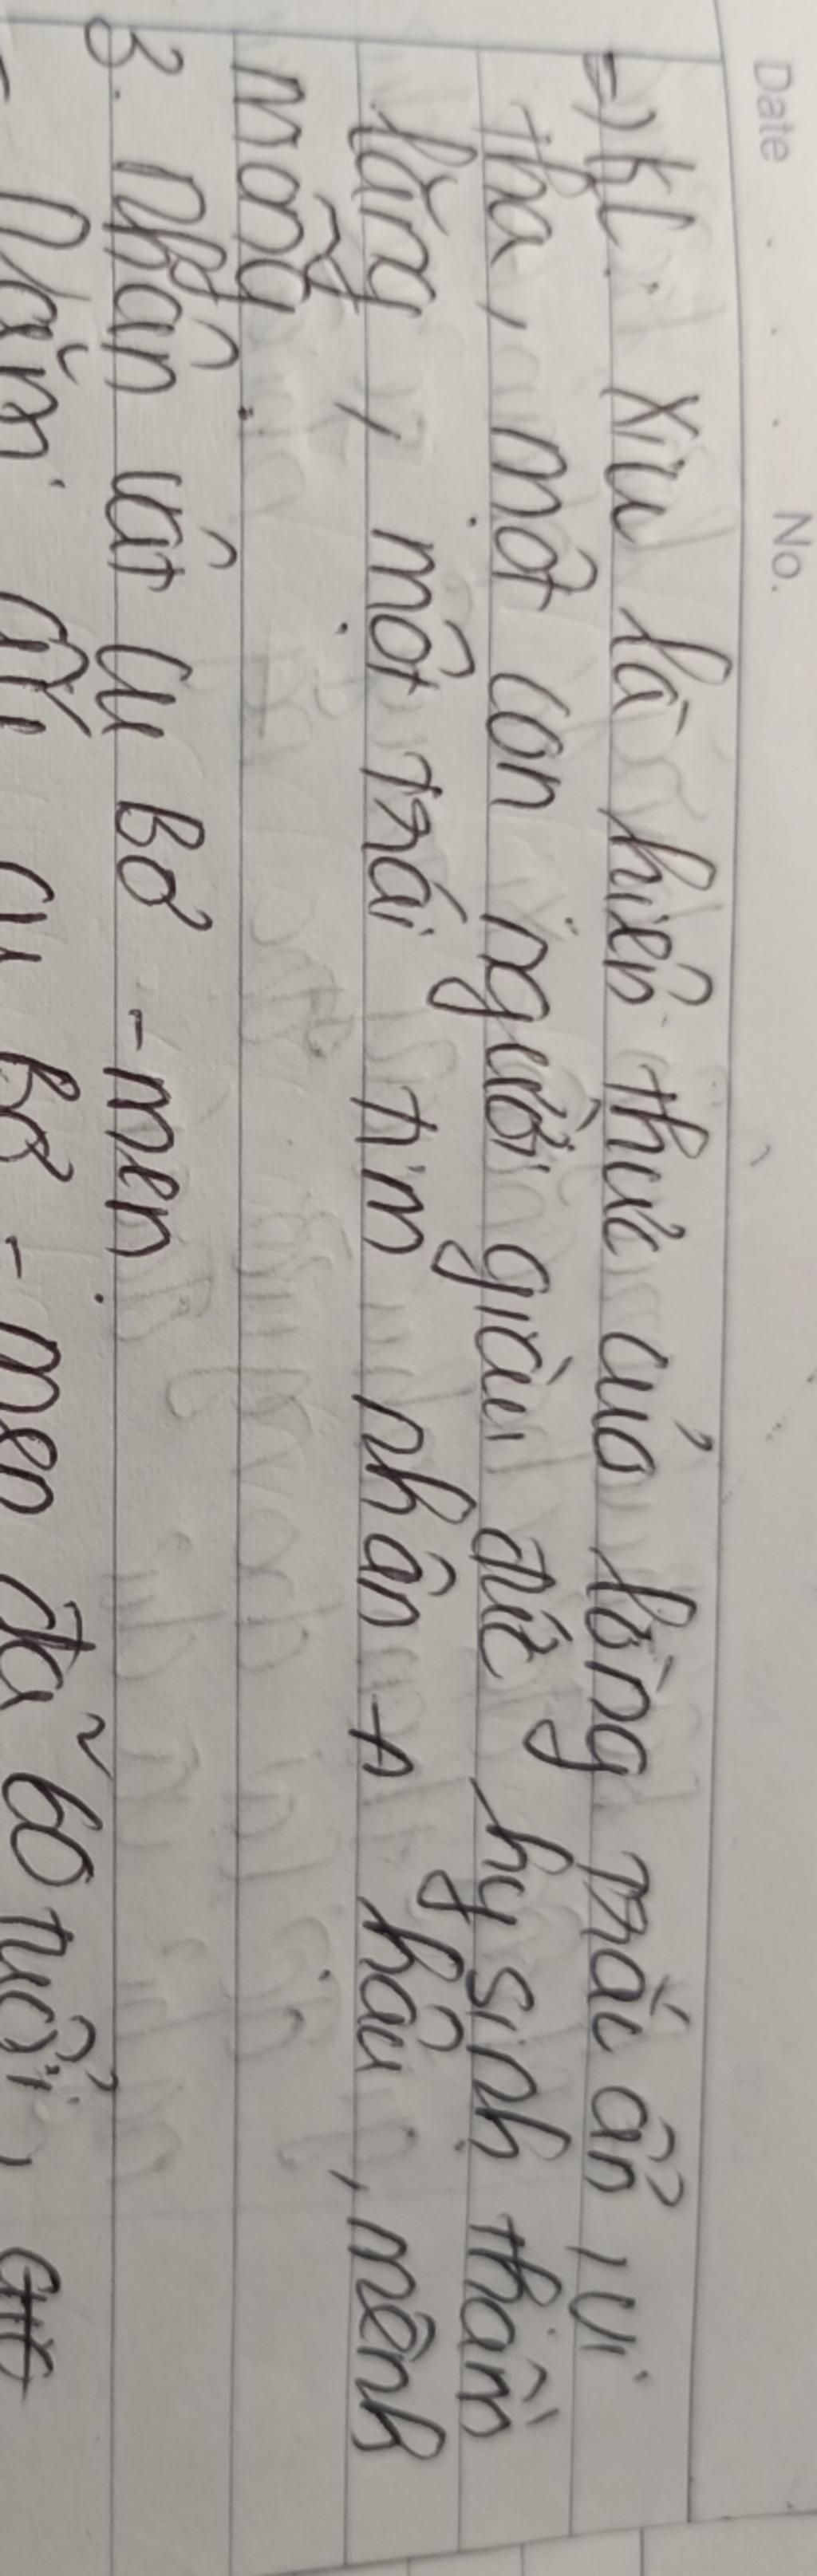 Date No.
=> KL: Xiu là hiện thực của lòng trắc ẩn, vị
tha, một con người giàu đức hy sinh thầm
lặng, một trái tim nhân hậu, mênh
mông.
3. Nhân vật cụ Bơ - men
cụ Bơ - men đã 60 tuổi,